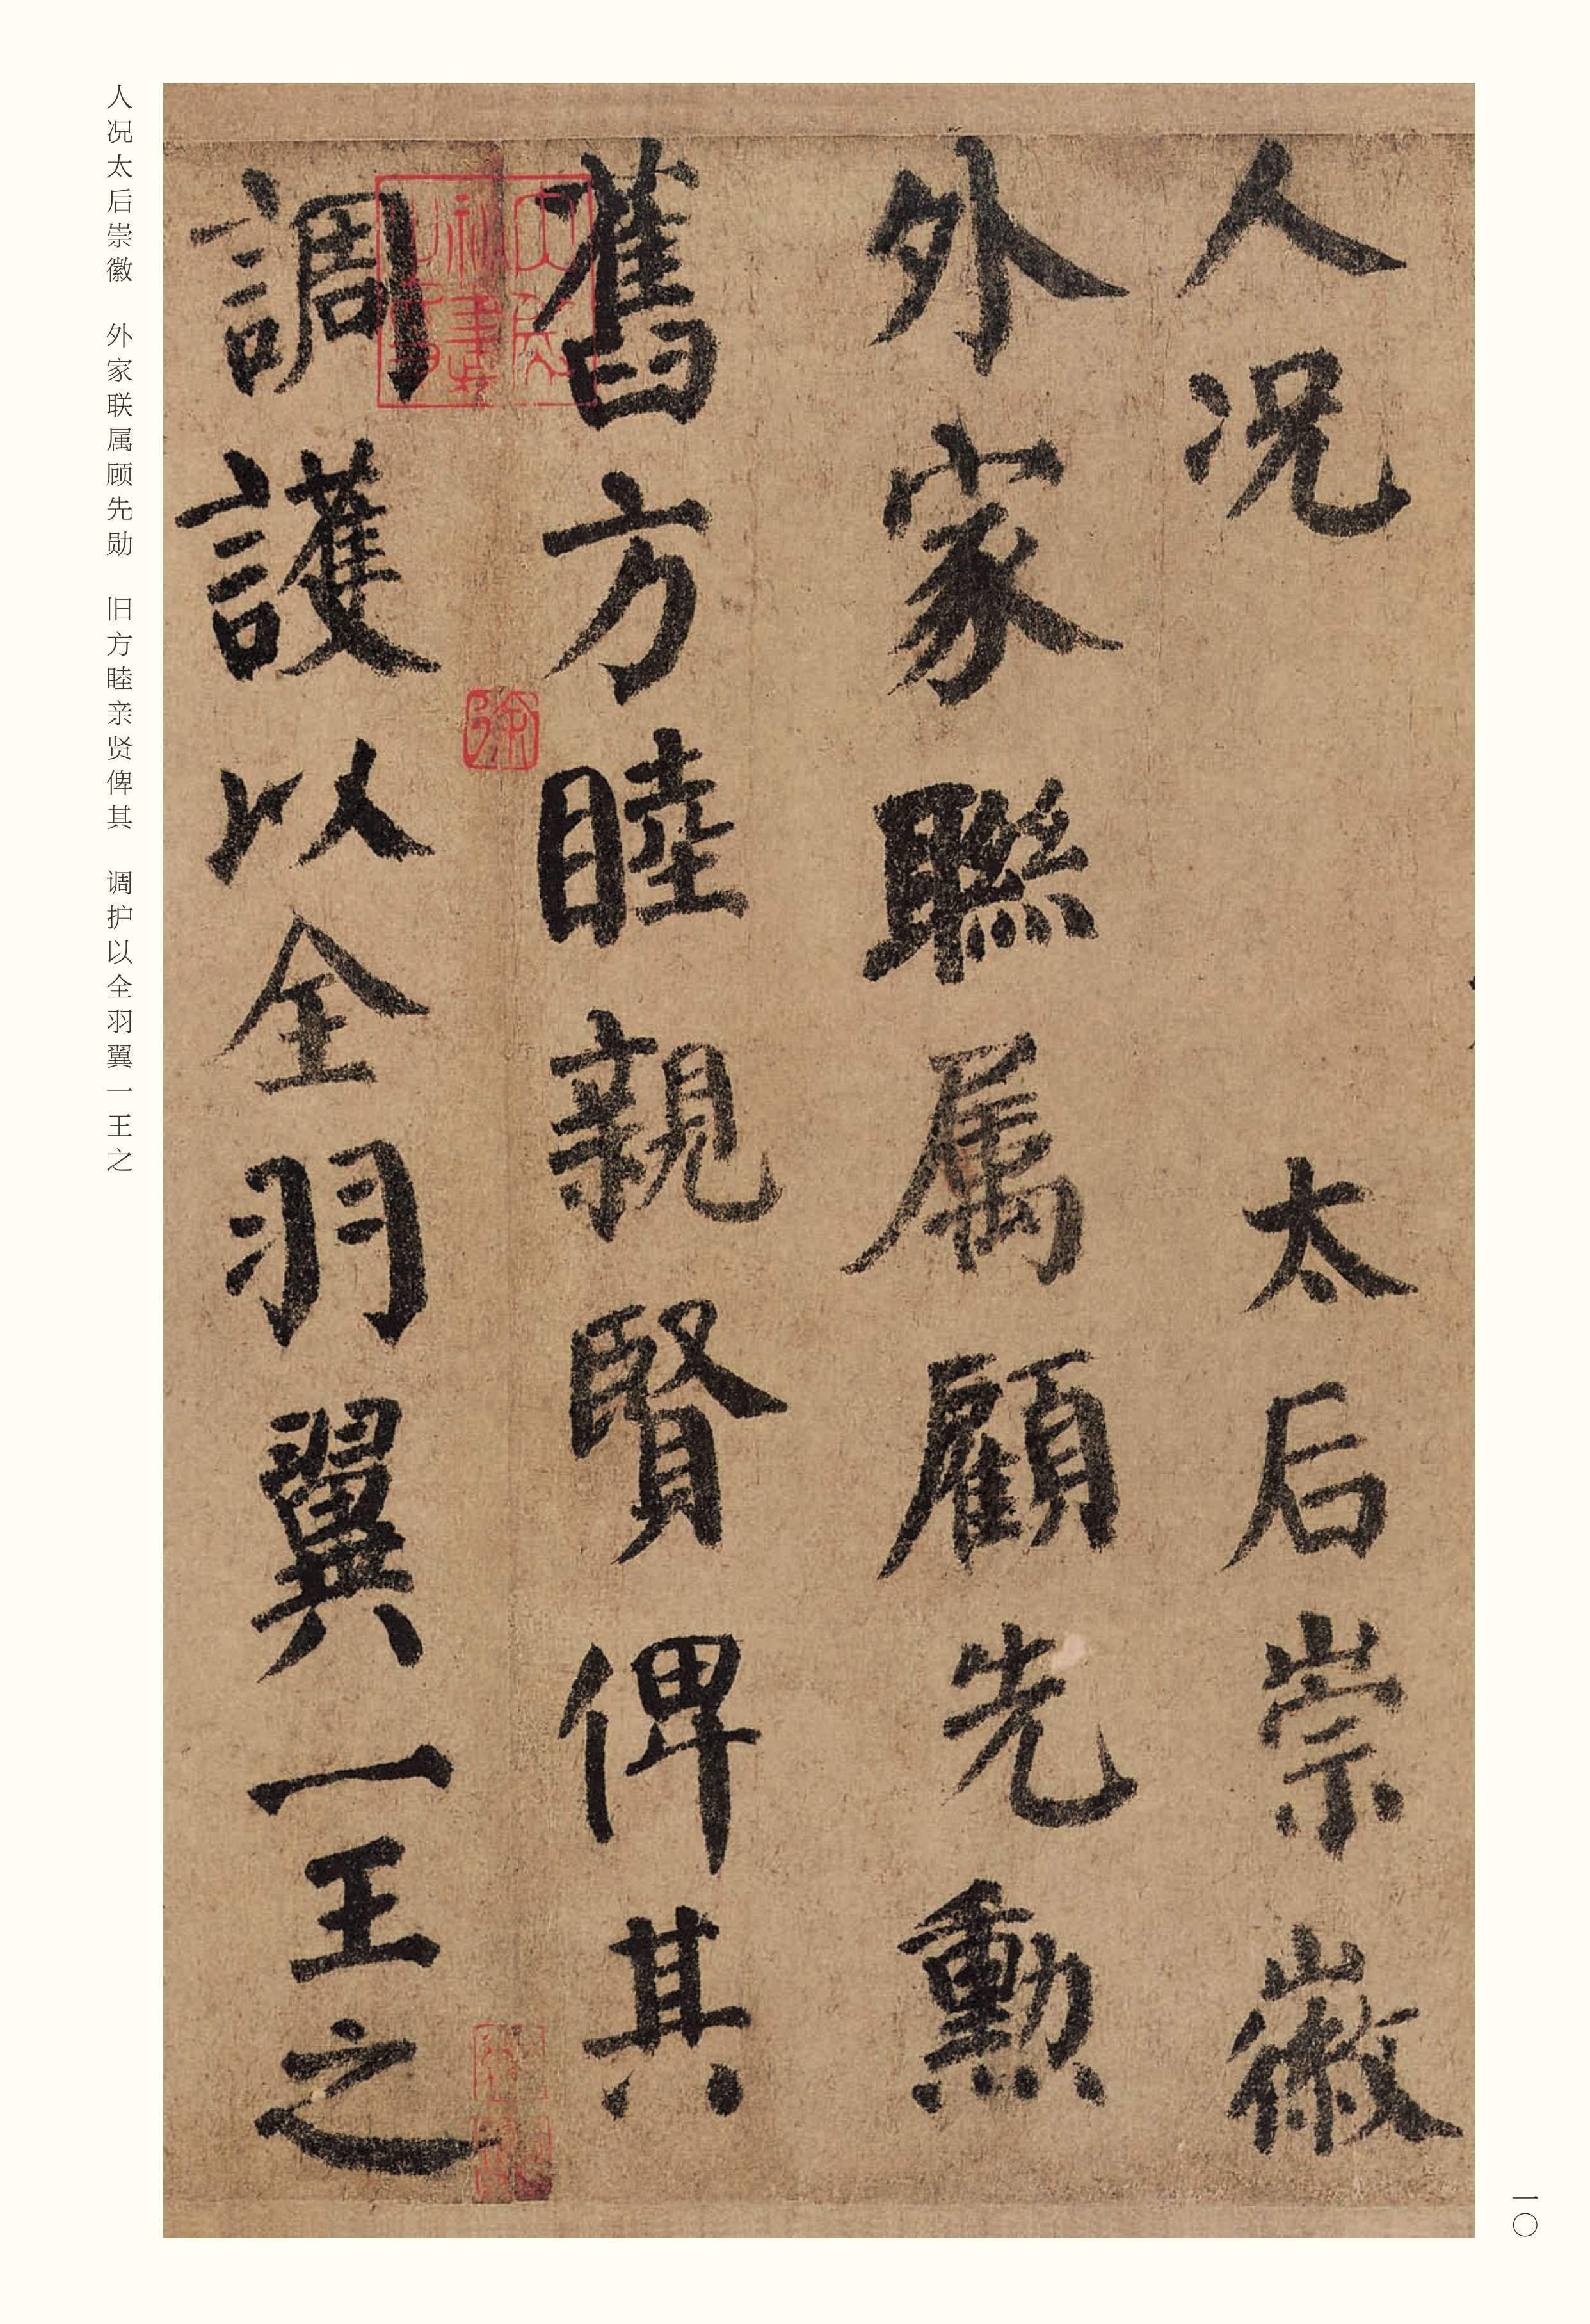 人况 太后崇徽
外家聮属顧先勳
舊方睦親賢俾其
調護以全羽翼一王之
人况太后崇徽 外家联属顾先勋 旧方睦亲贤俾其 调护以全羽翼一王之
一〇